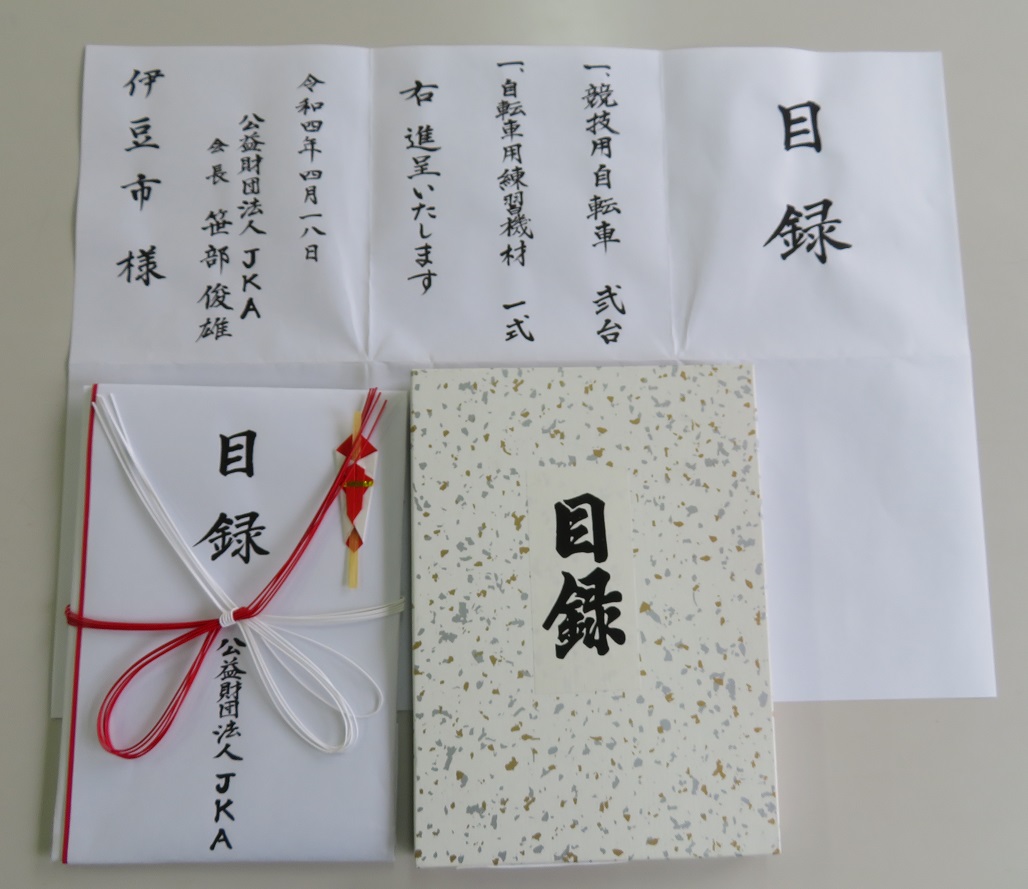 目録
一、競技用自転車 弐台
一、自転車用練習機材 一式
右進呈いたします
令和四年四月一八日
公益財団法人JKA
会長 笹部俊雄
伊豆市様
目録
公益財団法人JKA
目録